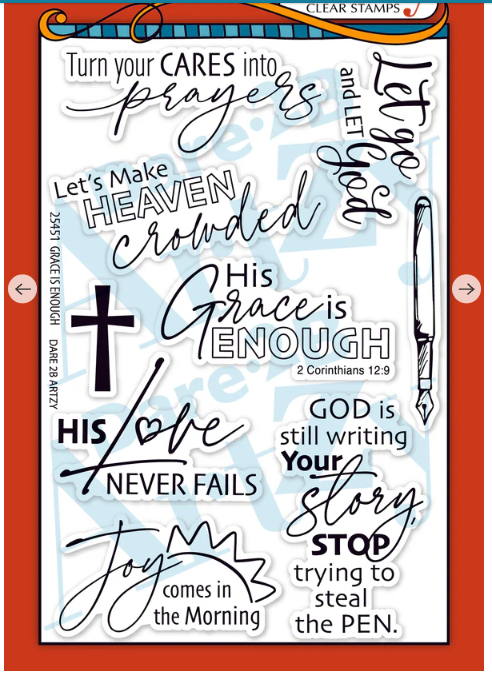 CLEAR STAMPS
Turn your CARES into
prayers
Let go
and LET
God
Let's Make
HEAVEN
crowded
25451 GRACE IS ENOUGH DARE 2B ARTZY
His
Grace is
ENOUGH
2 Corinthians 12:9
HIS Love
NEVER FAILS
GOD is
still writing
Your
story,
STOP
trying to
steal
the PEN.
Joy
comes in
the Morning
Dare·2B
Artzy
Dare·2B
Artzy